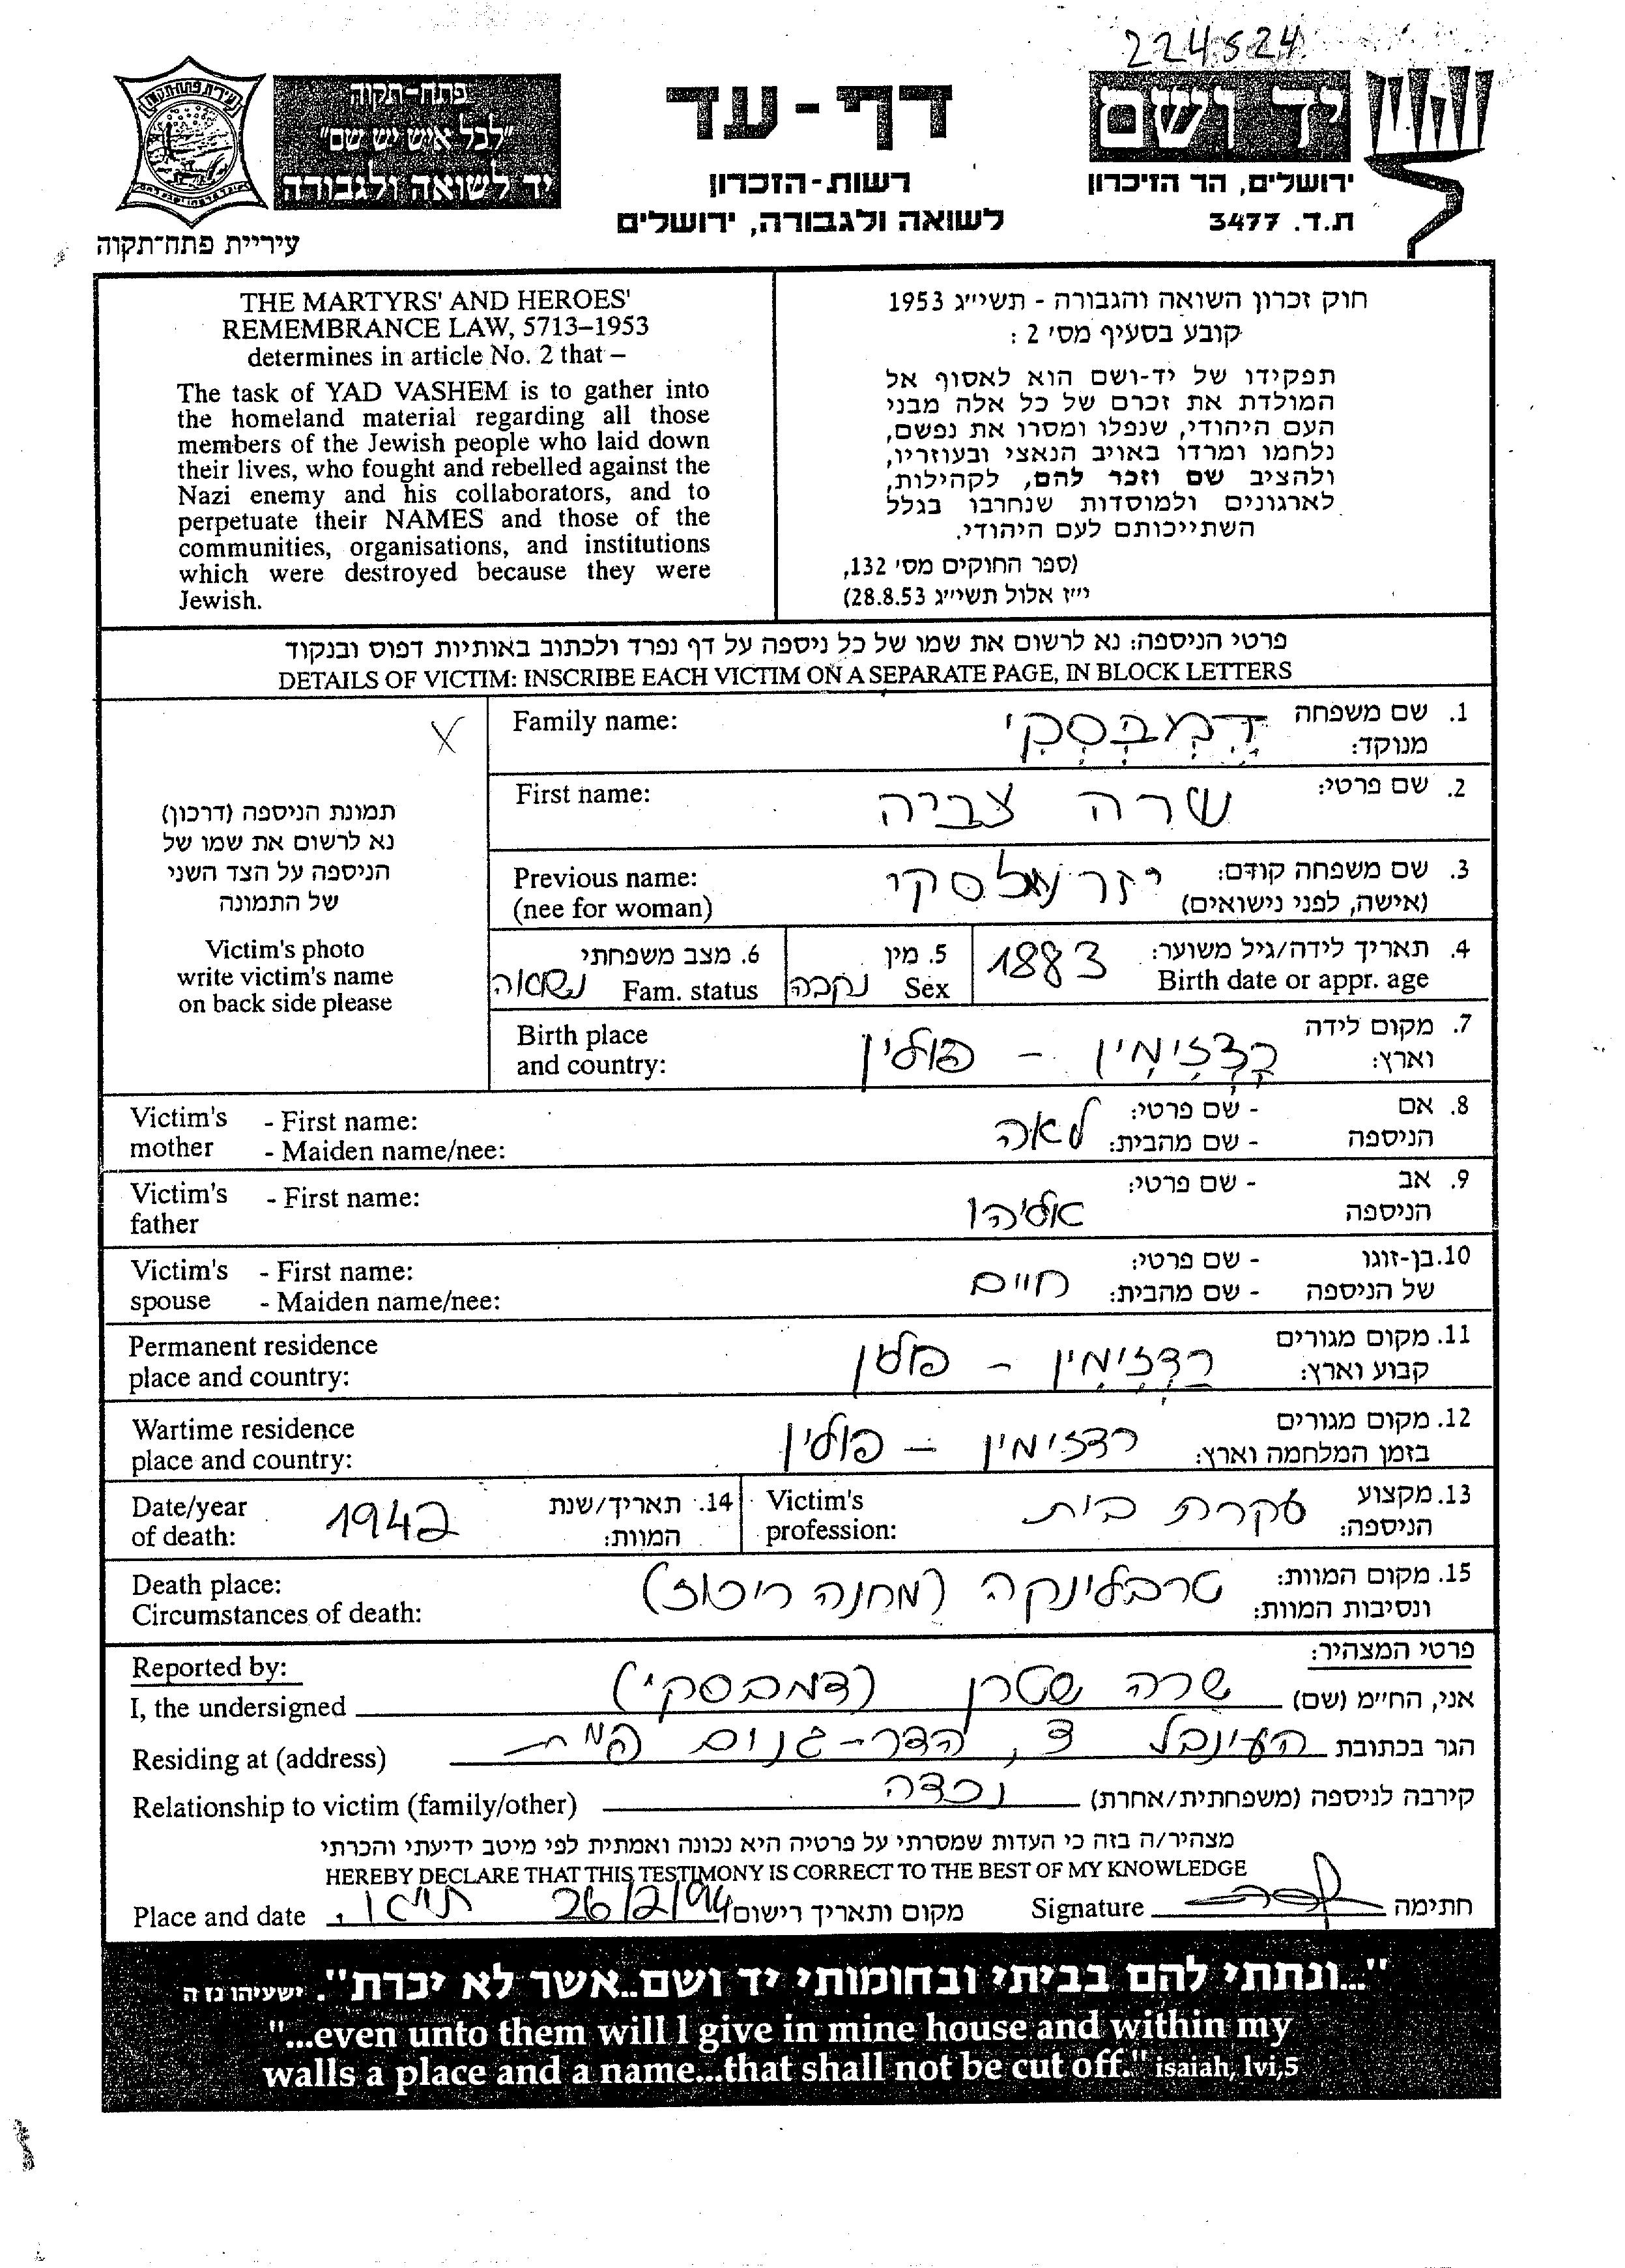 224524
פתח-תקוה
"לכל איש יש שם"
יד לשואה ולגבורה
עיריית פתח-תקוה
דף-עד
רשות-הזכרון
לשואה ולגבורה, ירושלים
יד ושם
ירושלים, הר הזיכרון
ת.ד. 3477
THE MARTYRS' AND HEROES'
REMEMBRANCE LAW, 5713–1953
determines in article No. 2 that –
The task of YAD VASHEM is to gather into
the homeland material regarding all those
members of the Jewish people who laid down
their lives, who fought and rebelled against the
Nazi enemy and his collaborators, and to
perpetuate their NAMES and those of the
communities, organisations, and institutions
which were destroyed because they were
Jewish.
חוק זכרון השואה והגבורה - תשי"ג 1953
קובע בסעיף מס' 2 :
תפקידו של יד-ושם הוא לאסוף אל
המולדת את זכרם של כל אלה מבני
העם היהודי, שנפלו ומסרו את נפשם,
נלחמו ומרדו באויב הנאצי ובעוזריו,
ולהציב שם וזכר להם, לקהילות,
לארגונים ולמוסדות שנחרבו בגלל
השתייכותם לעם היהודי.
(ספר החוקים מס' 132,
י"ז אלול תשי"ג 28.8.53)
פרטי הניספה: נא לרשום את שמו של כל ניספה על דף נפרד ולכתוב באותיות דפוס ובנקוד
DETAILS OF VICTIM: INSCRIBE EACH VICTIM ON A SEPARATE PAGE, IN BLOCK LETTERS
X
תמונת הניספה (דרכון)
נא לרשום את שמו של
הניספה על הצד השני
של התמונה
Victim's photo
write victim's name
on back side please
1. שם משפחה דמבסקי Family name:
מנוקד:
2. שם פרטי: שרה צביה First name:
3. שם משפחה קודם: Previous name:
(אישה, לפני נישואים) (nee for woman)
4. תאריך לידה/גיל משוער: 1883 5. מין 6. מצב משפחתי
Birth date or appr. age Sex נקבה Fam. status נשואה
7. מקום לידה רדזימין - פולין Birth place
וארץ: and country:
8. אם - שם פרטי: לאה Victim's - First name:
הניספה - שם מהבית: mother - Maiden name/nee:
9. אב - שם פרטי: אליהו Victim's - First name:
הניספה father
10. בן-זוגו - שם פרטי: חיים Victim's - First name:
של הניספה - שם מהבית: spouse - Maiden name/nee:
11. מקום מגורים רדזימין - פולין Permanent residence
קבוע וארץ: place and country:
12. מקום מגורים רדזימין - פולין Wartime residence
בזמן המלחמה וארץ: place and country:
13. מקצוע עקרת בית Victim's 14. תאריך/שנת 1942 Date/year
הניספה: profession: המוות: of death:
15. מקום המוות: טרבלינקה (מחנה ריכוז) Death place:
ונסיבות המוות: Circumstances of death:
פרטי המצהיר: Reported by:
אני, החי"מ (שם) שרה שטרן (דמבסקי) I, the undersigned
הגר בכתובת הדר-גנים Residing at (address)
קירבה לניספה (משפחתית/אחרת) נכדה Relationship to victim (family/other)
מצהיר/ה בזה כי העדות שמסרתי על פרטיה היא נכונה ואמתית לפי מיטב ידיעתי והכרתי
HEREBY DECLARE THAT THIS TESTIMONY IS CORRECT TO THE BEST OF MY KNOWLEDGE
חתימה Signature מקום ותאריך רישום 26/2/94 Place and date
"...ונתתי להם בביתי ובחומותי יד ושם..אשר לא יכרת". ישעיהו נו ה
"...even unto them will I give in mine house and within my
walls a place and a name...that shall not be cut off." isaiah, lvi,5